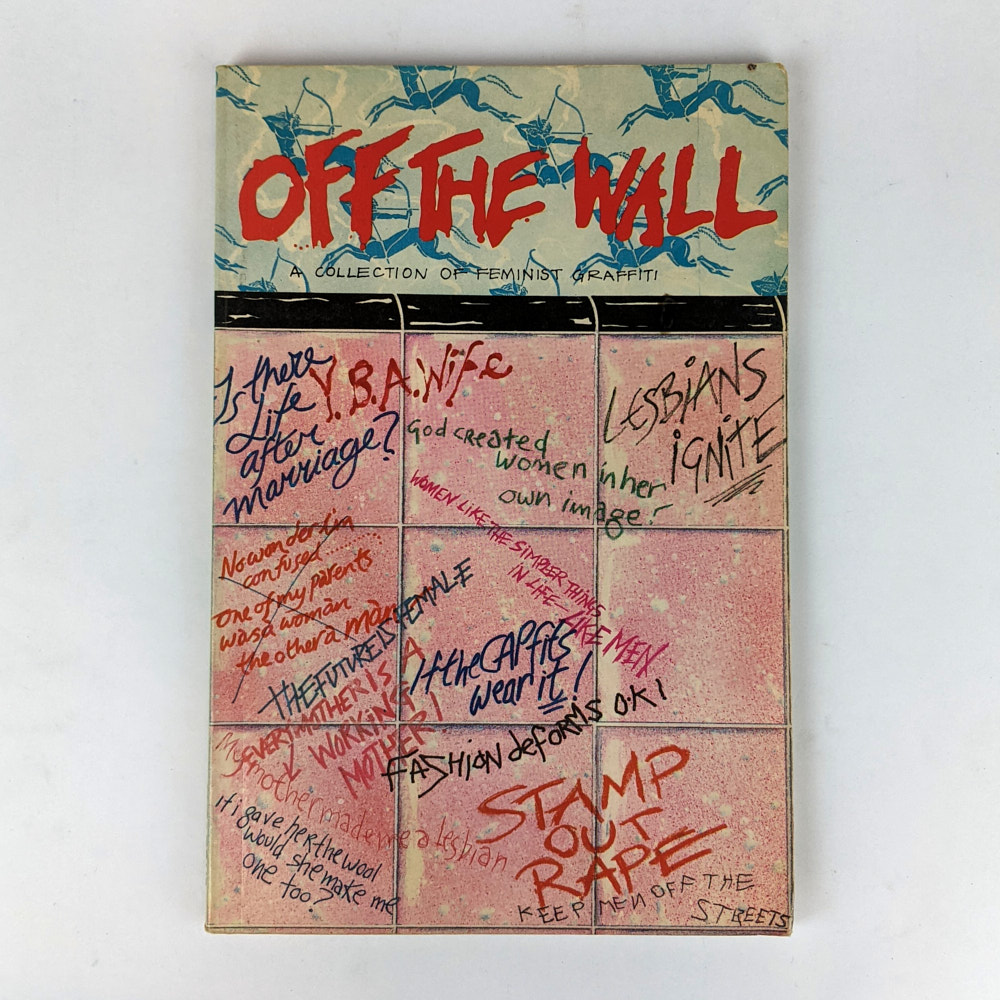 OFF THE WALL
A COLLECTION OF FEMINIST GRAFFITI
Is there
Life
after
marriage?
Y.B.A. Wife
LESBIANS
IGNITE
God created
women in her
own image!
WOMEN LIKE THE SIMPLER THINGS
IN LIFE - LIKE MEN
No wonder I'm
confused..........
one of my parents
was a woman
the other a man
THE FUTURE IS FEMALE
If the CAP fits
wear it!
EVERY MOTHER IS A
WORKING
MOTHER!
FASHION deforms O.K!
My mother made me a lesbian
if i gave her the wool
would she make me
one too?
STAMP
OUT
RAPE
KEEP MEN OFF THE
STREETS